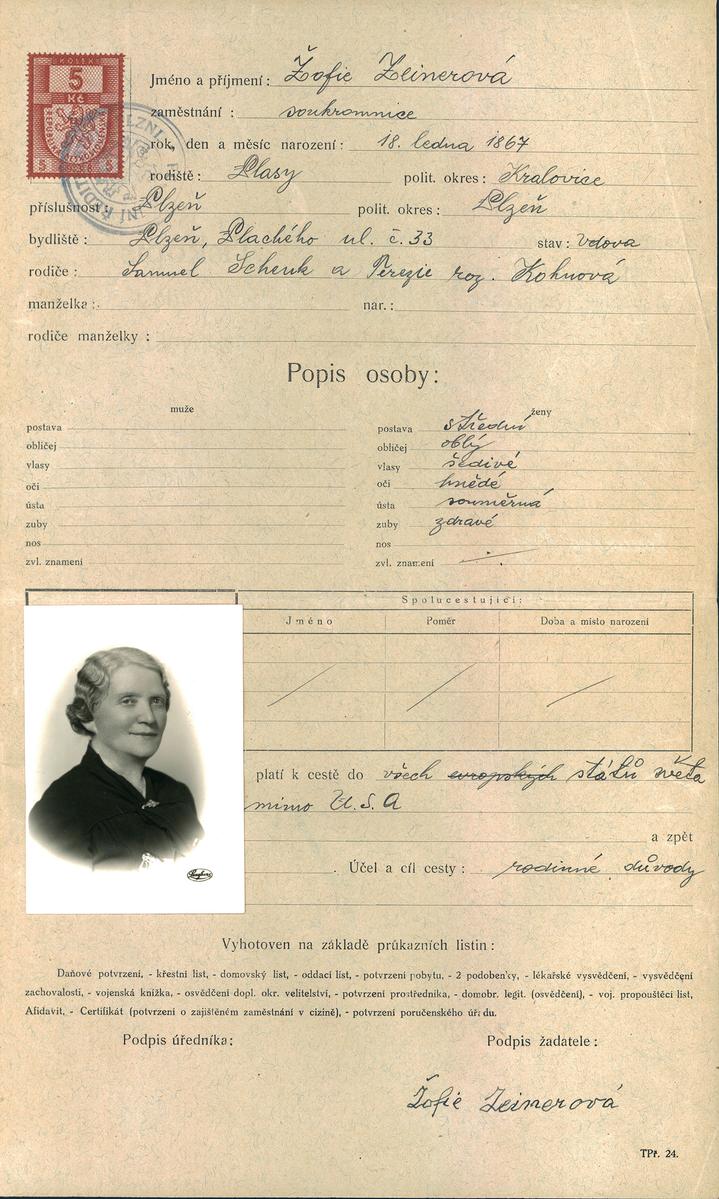 KOLEK
5
Kč
Jméno a příjmení: Žofie Zeinerová
zaměstnání: soukromnice
rok, den a měsíc narození: 18. ledna 1867
rodiště: Plasy polit. okres: Kralovice
příslušnost: Plzeň polit. okres: Plzeň
bydliště: Plzeň, Plachého ul. č. 33 stav: vdova
rodiče: Samuel Schenk a Terezie roz. Kohnová
manželka: nar.:
rodiče manželky:
Popis osoby:
muže ženy
postava postava střední
obličej obličej oblý
vlasy vlasy šedivé
oči oči hnědé
ústa ústa souměrná
zuby zuby zdravé
nos nos
zvl. znamení zvl. znamení
Spolucestující:
Jméno Poměr Doba a místo narození
platí k cestě do všech evropských států světa
mimo U.S.A
a zpět
Účel a cíl cesty: rodinné důvody
Vyhotoven na základě průkazních listin:
Daňové potvrzení, - křestní list, - domovský list, - oddací list, - potvrzení pobytu, - 2 podobenky, - lékařské vysvědčení, - vysvědčení
zachovalosti, - vojenská knížka, - osvědčení dopl. okr. velitelství, - potvrzení prostředníka, - domobr. legit. (osvědčení), - voj. propouštěcí list,
Afidavit, - Certifikát (potvrzení o zajištěném zaměstnání v cizině), - potvrzení poručenského úřadu.
Podpis úředníka: Podpis žadatele:
Žofie Zeinerová
TPř. 24.